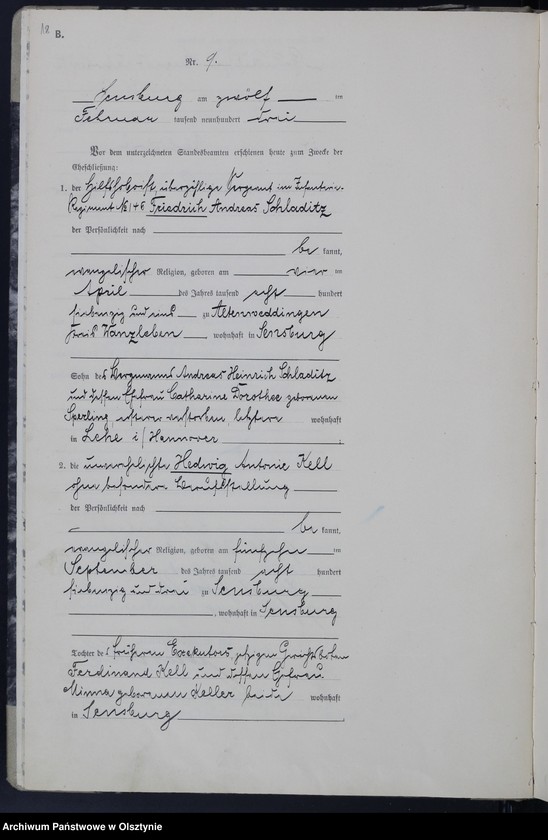 12
B.
Nr. 9.
Sensburg am zwölf ten
Februar tausend neunhundert drei
Vor dem unterzeichneten Standesbeamten erschienen heute zum Zwecke der
Eheschließung:
1. der überzählige Sergeant im Infanterie-
Regiment No 146 Friedrich Andreas Schladitz
der Persönlichkeit nach
be kannt,
evangelischer Religion, geboren am vier ten
April des Jahres tausend acht hundert
siebenzig und eins zu Altenweddingen
Kreis Wanzleben, wohnhaft in Sensburg
Sohn des Bergmanns Andreas Heinrich Schladitz
und dessen Ehefrau Catharine Dorothee geborenen
Sperling, ersterer verstorben, letztere wohnhaft
in Lehe i/Hannover.
2. die unverehelichte Hedwig Antonie Kell
ohne besondere Berufsstellung
der Persönlichkeit nach
be kannt,
evangelischer Religion, geboren am fünfzehn ten
September des Jahres tausend acht hundert
siebenzig und drei zu Sensburg
, wohnhaft in Sensburg
Tochter des früheren Exekutors jetzigen Gerichtsboten
Ferdinand Kell und dessen Ehefrau
Minna geborenen Keller beide wohnhaft
in Sensburg.
Archiwum Państwowe w Olsztynie